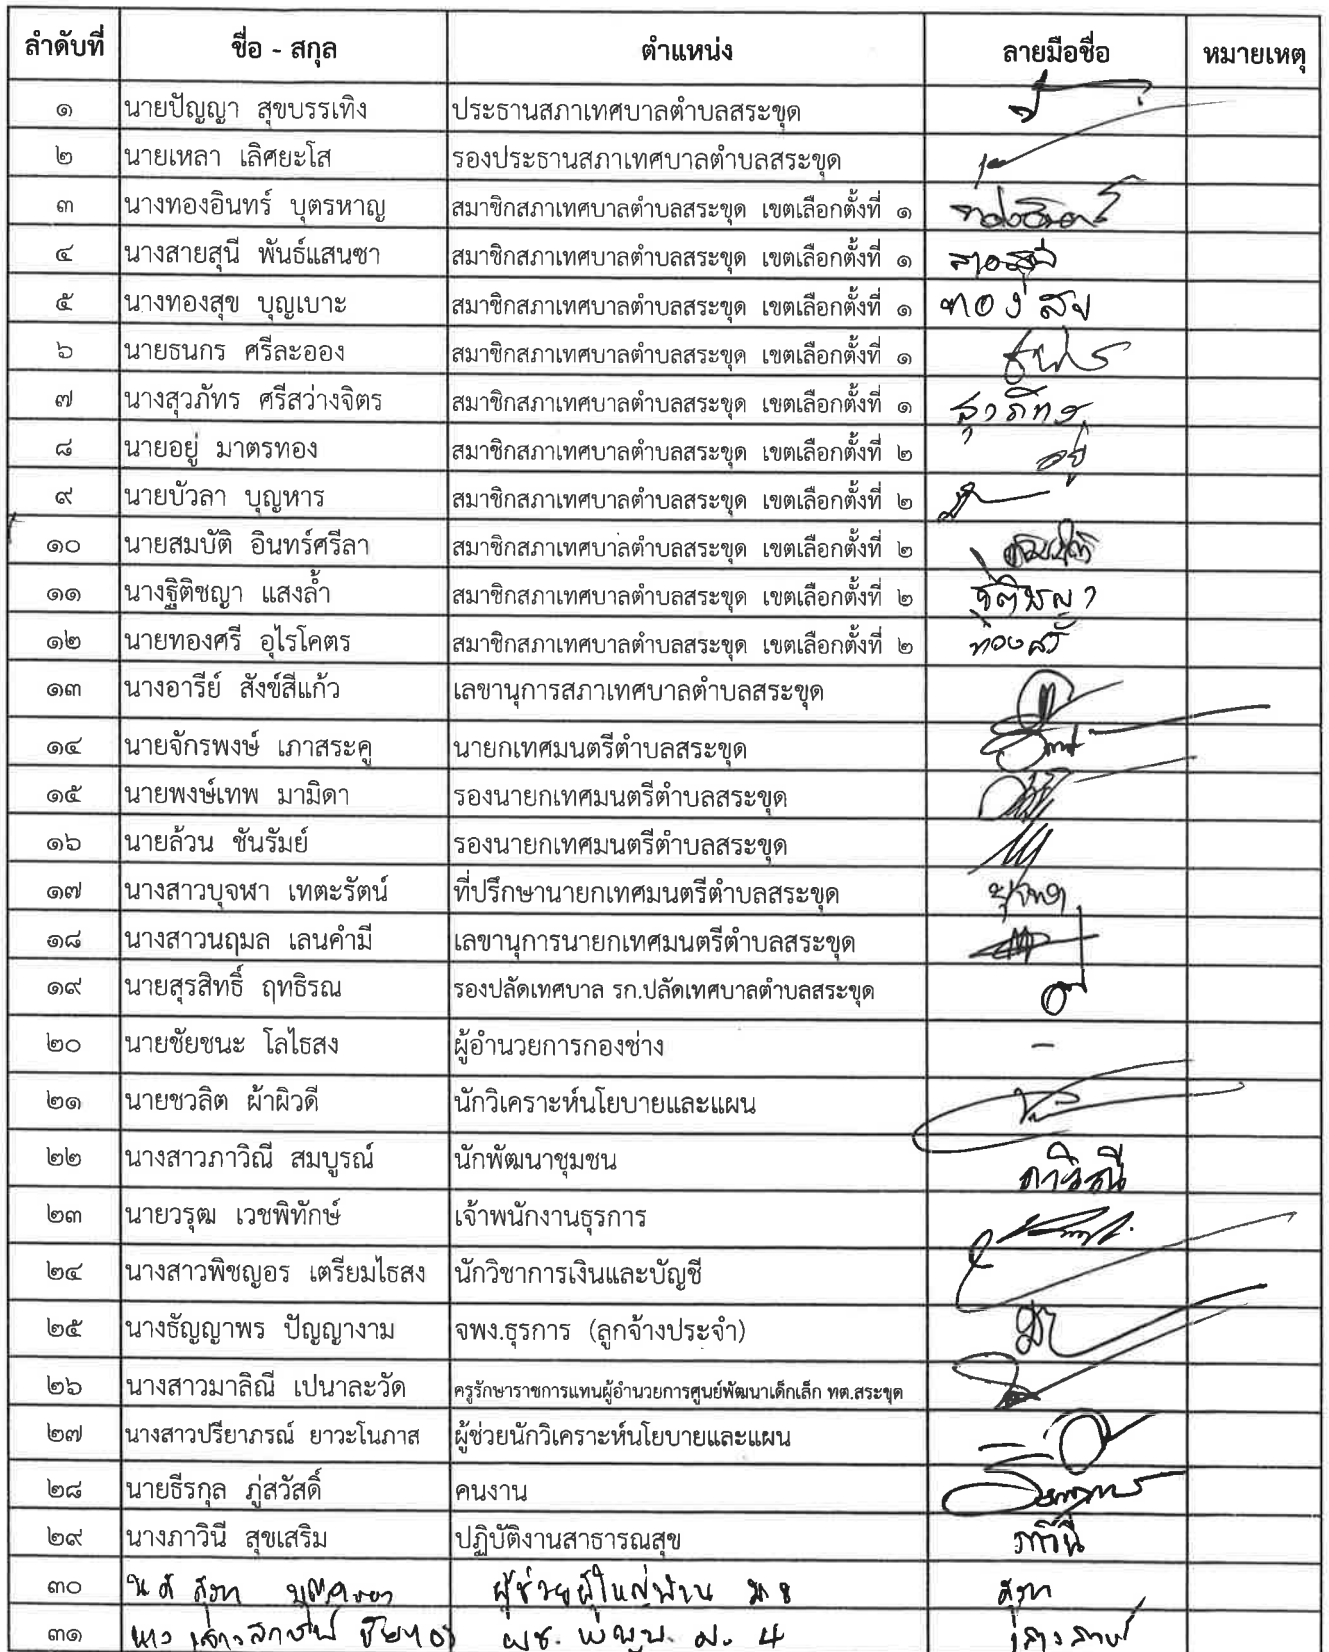 ลำดับที่ ชื่อ - สกุล ตำแหน่ง ลายมือชื่อ หมายเหตุ
๑ นายปัญญา สุขบรรเทิง ประธานสภาเทศบาลตำบลสระขุด
๒ นายเหลา เลิศยะโส รองประธานสภาเทศบาลตำบลสระขุด
๓ นางทองอินทร์ บุตรหาญ สมาชิกสภาเทศบาลตำบลสระขุด เขตเลือกตั้งที่ ๑
๔ นางสายสุนี พันธ์แสนซา สมาชิกสภาเทศบาลตำบลสระขุด เขตเลือกตั้งที่ ๑ สายสุนี
๕ นางทองสุข บุญเบาะ สมาชิกสภาเทศบาลตำบลสระขุด เขตเลือกตั้งที่ ๑ ทองสุข
๖ นายธนกร ศรีละออง สมาชิกสภาเทศบาลตำบลสระขุด เขตเลือกตั้งที่ ๑
๗ นางสุวภัทร ศรีสว่างจิตร สมาชิกสภาเทศบาลตำบลสระขุด เขตเลือกตั้งที่ ๑ สุวภัทร
๘ นายอยู่ มาตรทอง สมาชิกสภาเทศบาลตำบลสระขุด เขตเลือกตั้งที่ ๒ อยู่
๙ นายบัวลา บุญหาร สมาชิกสภาเทศบาลตำบลสระขุด เขตเลือกตั้งที่ ๒
๑๐ นายสมบัติ อินทร์ศรีลา สมาชิกสภาเทศบาลตำบลสระขุด เขตเลือกตั้งที่ ๒ สมบัติ
๑๑ นางฐิติชญา แสงล้ำ สมาชิกสภาเทศบาลตำบลสระขุด เขตเลือกตั้งที่ ๒ ฐิติชญา
๑๒ นายทองศรี อุไรโคตร สมาชิกสภาเทศบาลตำบลสระขุด เขตเลือกตั้งที่ ๒ ทองศรี
๑๓ นางอารีย์ สังข์สีแก้ว เลขานุการสภาเทศบาลตำบลสระขุด
๑๔ นายจักรพงษ์ เภาสระคู นายกเทศมนตรีตำบลสระขุด
๑๕ นายพงษ์เทพ มามิดา รองนายกเทศมนตรีตำบลสระขุด
๑๖ นายล้วน ชันรัมย์ รองนายกเทศมนตรีตำบลสระขุด
๑๗ นางสาวบุจฬา เทตะรัตน์ ที่ปรึกษานายกเทศมนตรีตำบลสระขุด
๑๘ นางสาวนฤมล เลนคำมี เลขานุการนายกเทศมนตรีตำบลสระขุด
๑๙ นายสุรสิทธิ์ ฤทธิรณ รองปลัดเทศบาล รก.ปลัดเทศบาลตำบลสระขุด
๒๐ นายชัยชนะ โลไธสง ผู้อำนวยการกองช่าง -
๒๑ นายชวลิต ผ้าผิวดี นักวิเคราะห์นโยบายและแผน
๒๒ นางสาวภาวิณี สมบูรณ์ นักพัฒนาชุมชน ภาวิณี
๒๓ นายวรุฒ เวชพิทักษ์ เจ้าพนักงานธุรการ
๒๔ นางสาวพิชญอร เตรียมไธสง นักวิชาการเงินและบัญชี
๒๕ นางธัญญาพร ปัญญางาม จพง.ธุรการ (ลูกจ้างประจำ)
๒๖ นางสาวมาลิณี เปนาละวัด ครูรักษาราชการแทนผู้อำนวยการศูนย์พัฒนาเด็กเล็ก ทต.สระขุด
๒๗ นางสาวปรียาภรณ์ ยาวะโนภาส ผู้ช่วยนักวิเคราะห์นโยบายและแผน
๒๘ นายธีรกุล ภู่สวัสดิ์ คนงาน
๒๙ นางภาวินี สุขเสริม ปฏิบัติงานสาธารณสุข ภาวินี
๓๐ ผู้ช่วยผู้ใหญ่บ้าน ม.8
๓๑ นาง ม. 4